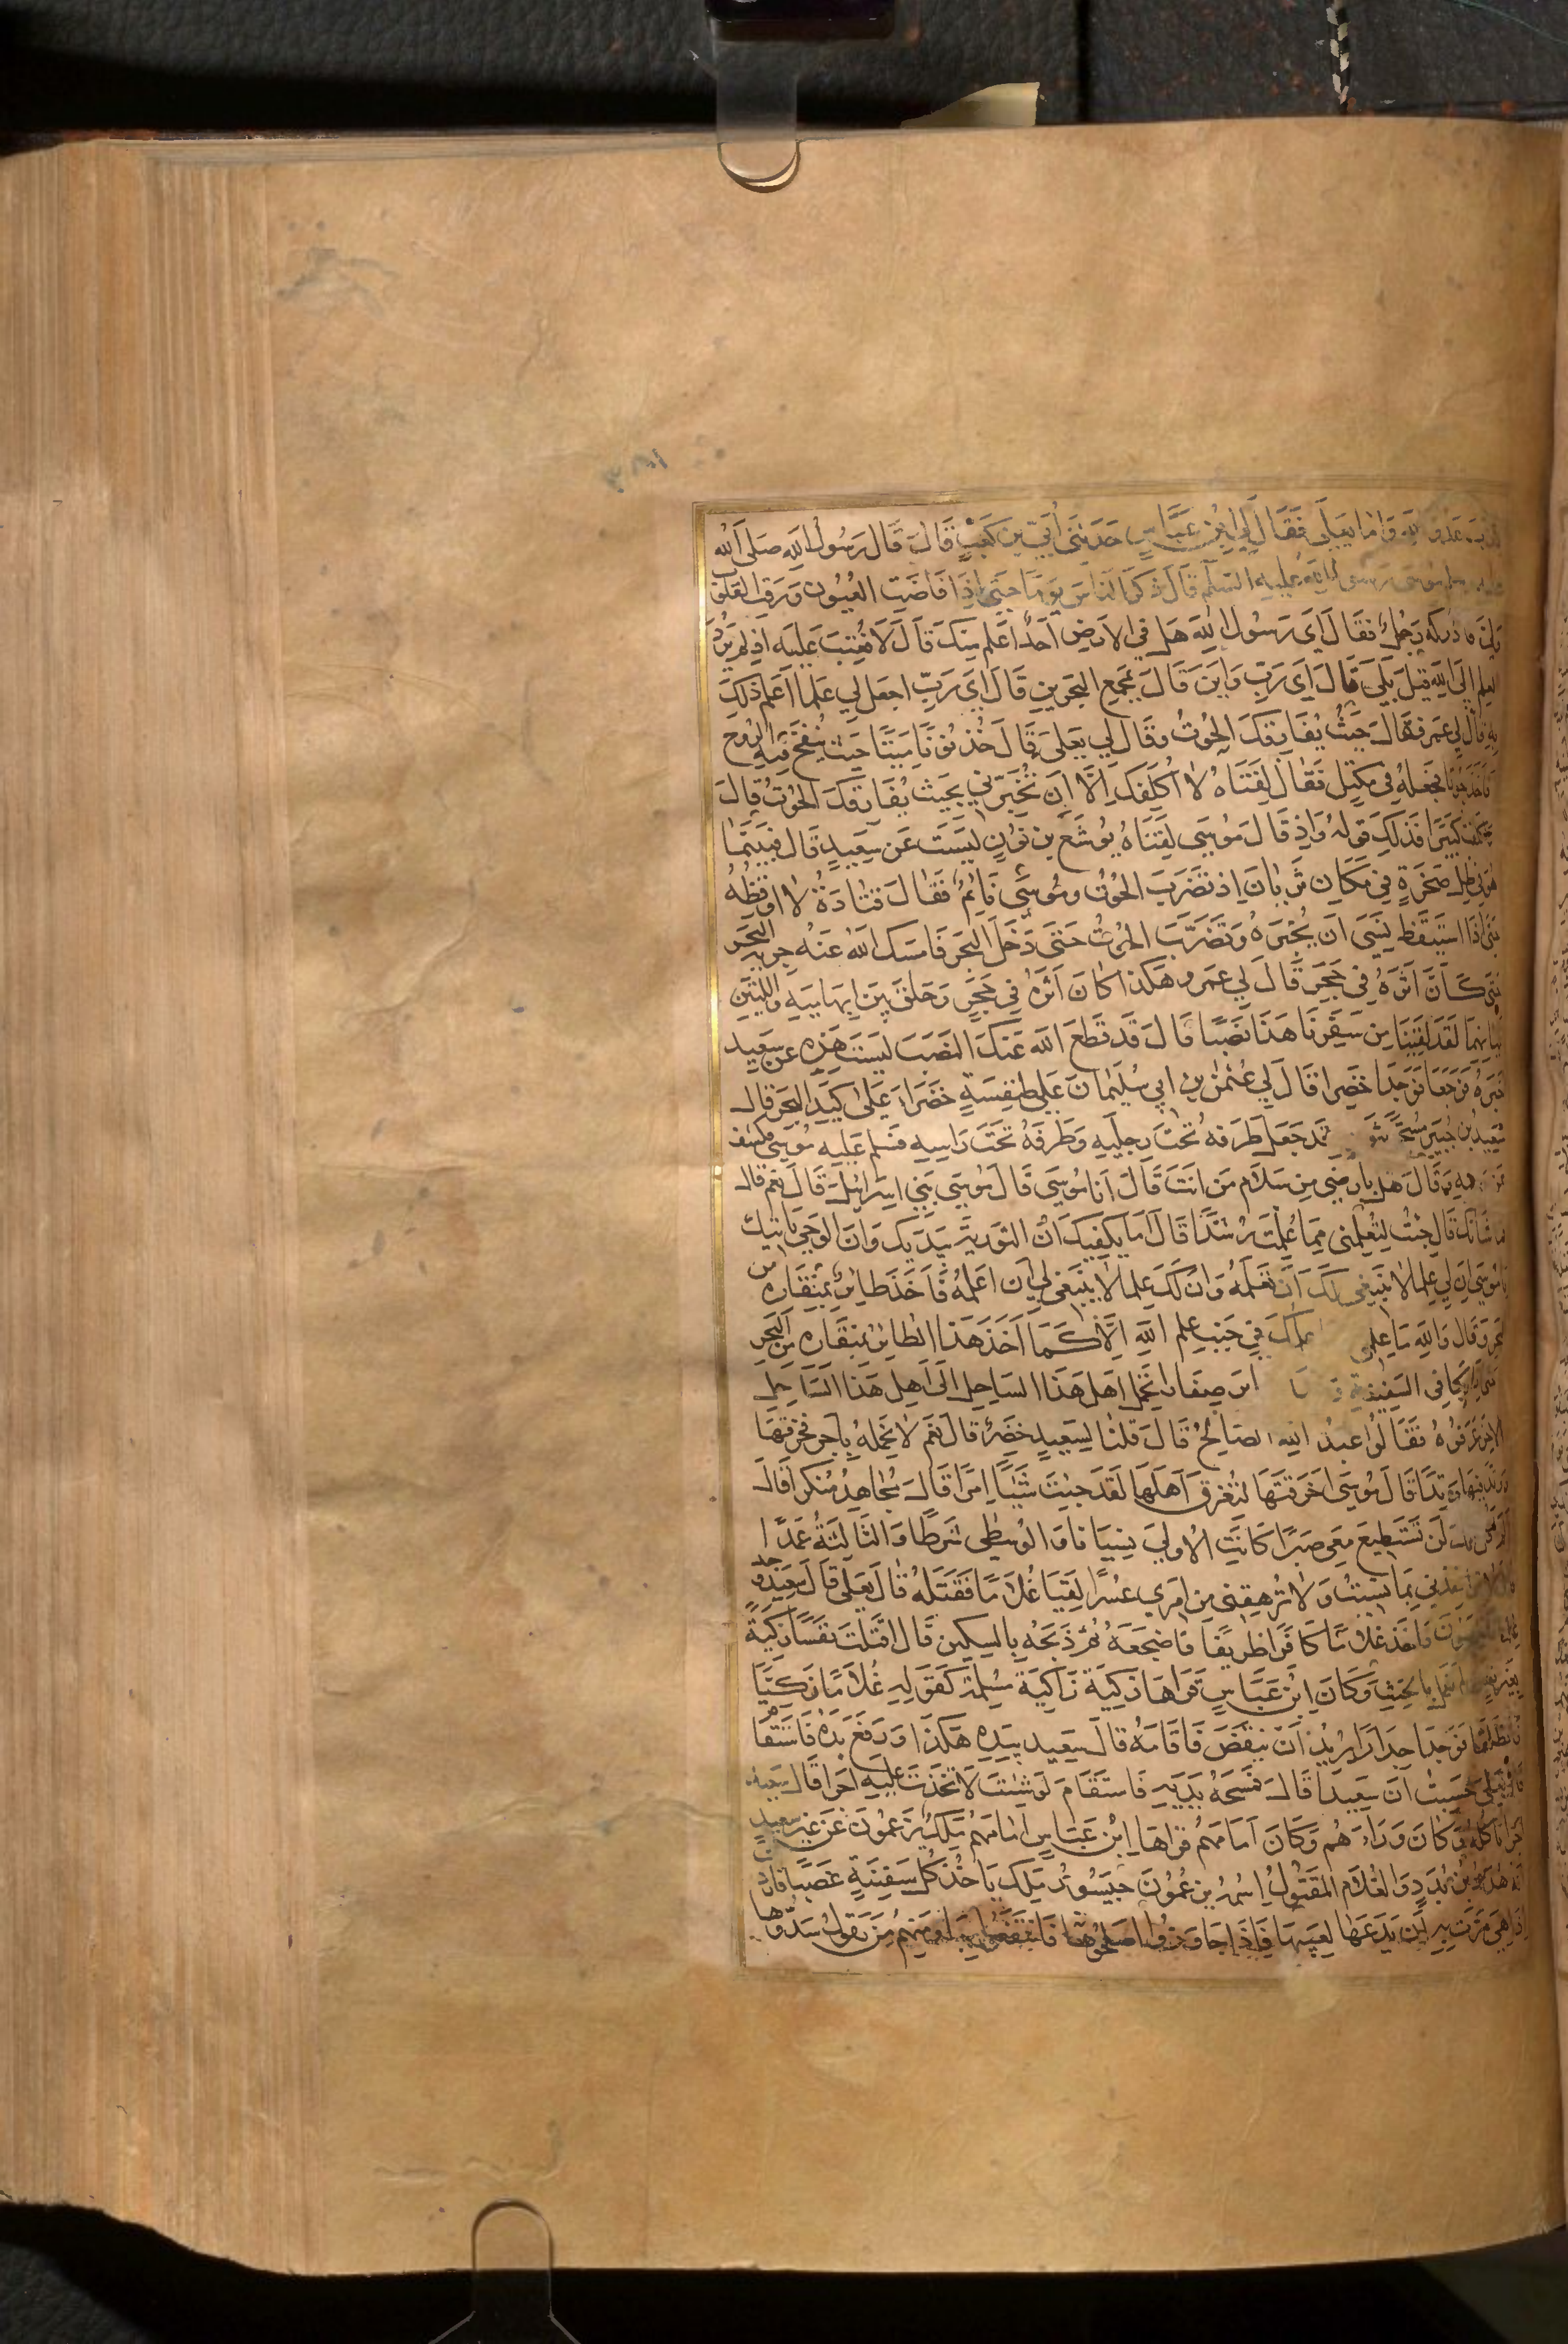 عدو الله واما يعلى فقال لي ابن عباس حدثني ابي بن كعب قال قال رسول الله صلى الله
موسى رسول الله عليه السلم قال ذكر الناس يوما حتى اذا فاضت العيون ورقت القلوب
ولى فادركه رجل فقال اي رسول الله هل في الارض احدا اعلم منك قال لا فعتب عليه اذ لم يرد
العلم الى الله قيل بلى قال اي رب واين قال بمجمع البحرين قال اي رب اجعل لي علما اعلم ذلك
به قال لي عمرو فقال حيث يفارقك الحوت وقال لي يعلى قال خذ نونا ميتا حيث ينفخ فيه الروح
فاخذ حوتا فجعله في مكتل فقال لفتاه لا اكلفك الا ان تخبرني بحيث يفارقك الحوت قال
كلفت كثيرا فذلك قوله واذ قال موسى لفتاه يوشع بن نون ليست عن سعيد قال فبينما
هو في ظل صخرة في مكان ثريان اذ تضرب الحوت وموسى نائم فقال فتاه لا اوقظه
حتى اذا استيقظ نسى ان يخبره وتضرب الحوت حتى دخل البحر فامسك الله عنه جرية البحر
حتى كان اثره في حجر قال لي عمرو هكذا كان اثره في حجر وحلق بين ابهاميه واللتين
تليانهما لقد لقينا من سفرنا هذا نصبا قال قد قطع الله عنك النصب ليست هذه عن سعيد
اخبره فرجعا فوجدا خضرا قال لي عثمن بن ابي سليمان على طنفسة خضرا على كبد البحر قال
سعيد بن جبير مسجى قد جعل طرفه تحت رجليه وطرفه تحت راسه فسلم عليه موسى فكشف
وجهه وقال هل بارضي من سلام من انت قال انا موسى قال موسى بني اسرائيل قال نعم قال
فما شانك قال جئت لتعلمني مما علمت رشدا قال اما يكفيك ان التورية بيديك وان الوحي ياتيك
يا موسى ان لي علما لا ينبغي لك ان تعلمه وان لك علما لا ينبغي لي ان اعلمه فاخذ طائر بمنقاره من
البحر وقال والله ما علمي علمك في جنب علم الله الا كما اخذ هذا الطائر بمنقاره من البحر
حتى اذا ركبا في السفينة ابر صغارا تحمل اهل هذا الساحل الى اهل هذا الساحل
الاخر عرفوه فقالوا عبد الله الصالح قال قلنا لسعيد خضر قال نعم لا نحمله باجر فخرقها
ووتد فيها وتدا قال موسى اخرقتها لتغرق اهلها لقد جئت شيئا امرا قال مجاهد منكرا قال
الم اقل انك لن تستطيع معي صبرا كانت الاولى نسيانا والوسطى شرطا والثالثة عمدا
قال لا تؤاخذني بما نسيت ولا ترهقني من امري عسرا لقيا غلاما فقتله قال يعلى قال سعيد وجد
غلمانا يلعبون فاخذ غلاما كافرا ظريفا فاضجعه ثم ذبحه بالسكين قال اقتلت نفسا زكية
بغير نفس لم تعمل بالحنث وكان ابن عباس قراها زكية زاكية مسلمة كقوله غلاما زكيا
فانطلقا فوجدا جدارا يريد ان ينقض فاقامه قال سعيد بيده هكذا ورفع يده فاستقام
قال يعلى حسبت ان سعيدا قال فمسحه بيديه فاستقام لو شئت لاتخذت عليه اجرا قال سعيد
اجرا ناكله وكان وراءهم وكان امامهم قراها ابن عباس امامهم ملك يزعمون عن غير سعيد
انه هدد بن بدد والغلام المقتول اسمه يزعمون جيسور ملك ياخذ كل سفينة غصبا فاردت
اذا هي مرت به ان يدعها لعيبها فاذا جاوزوا اصلحوها فانتفعوا بها ومنهم من يقول سدوها